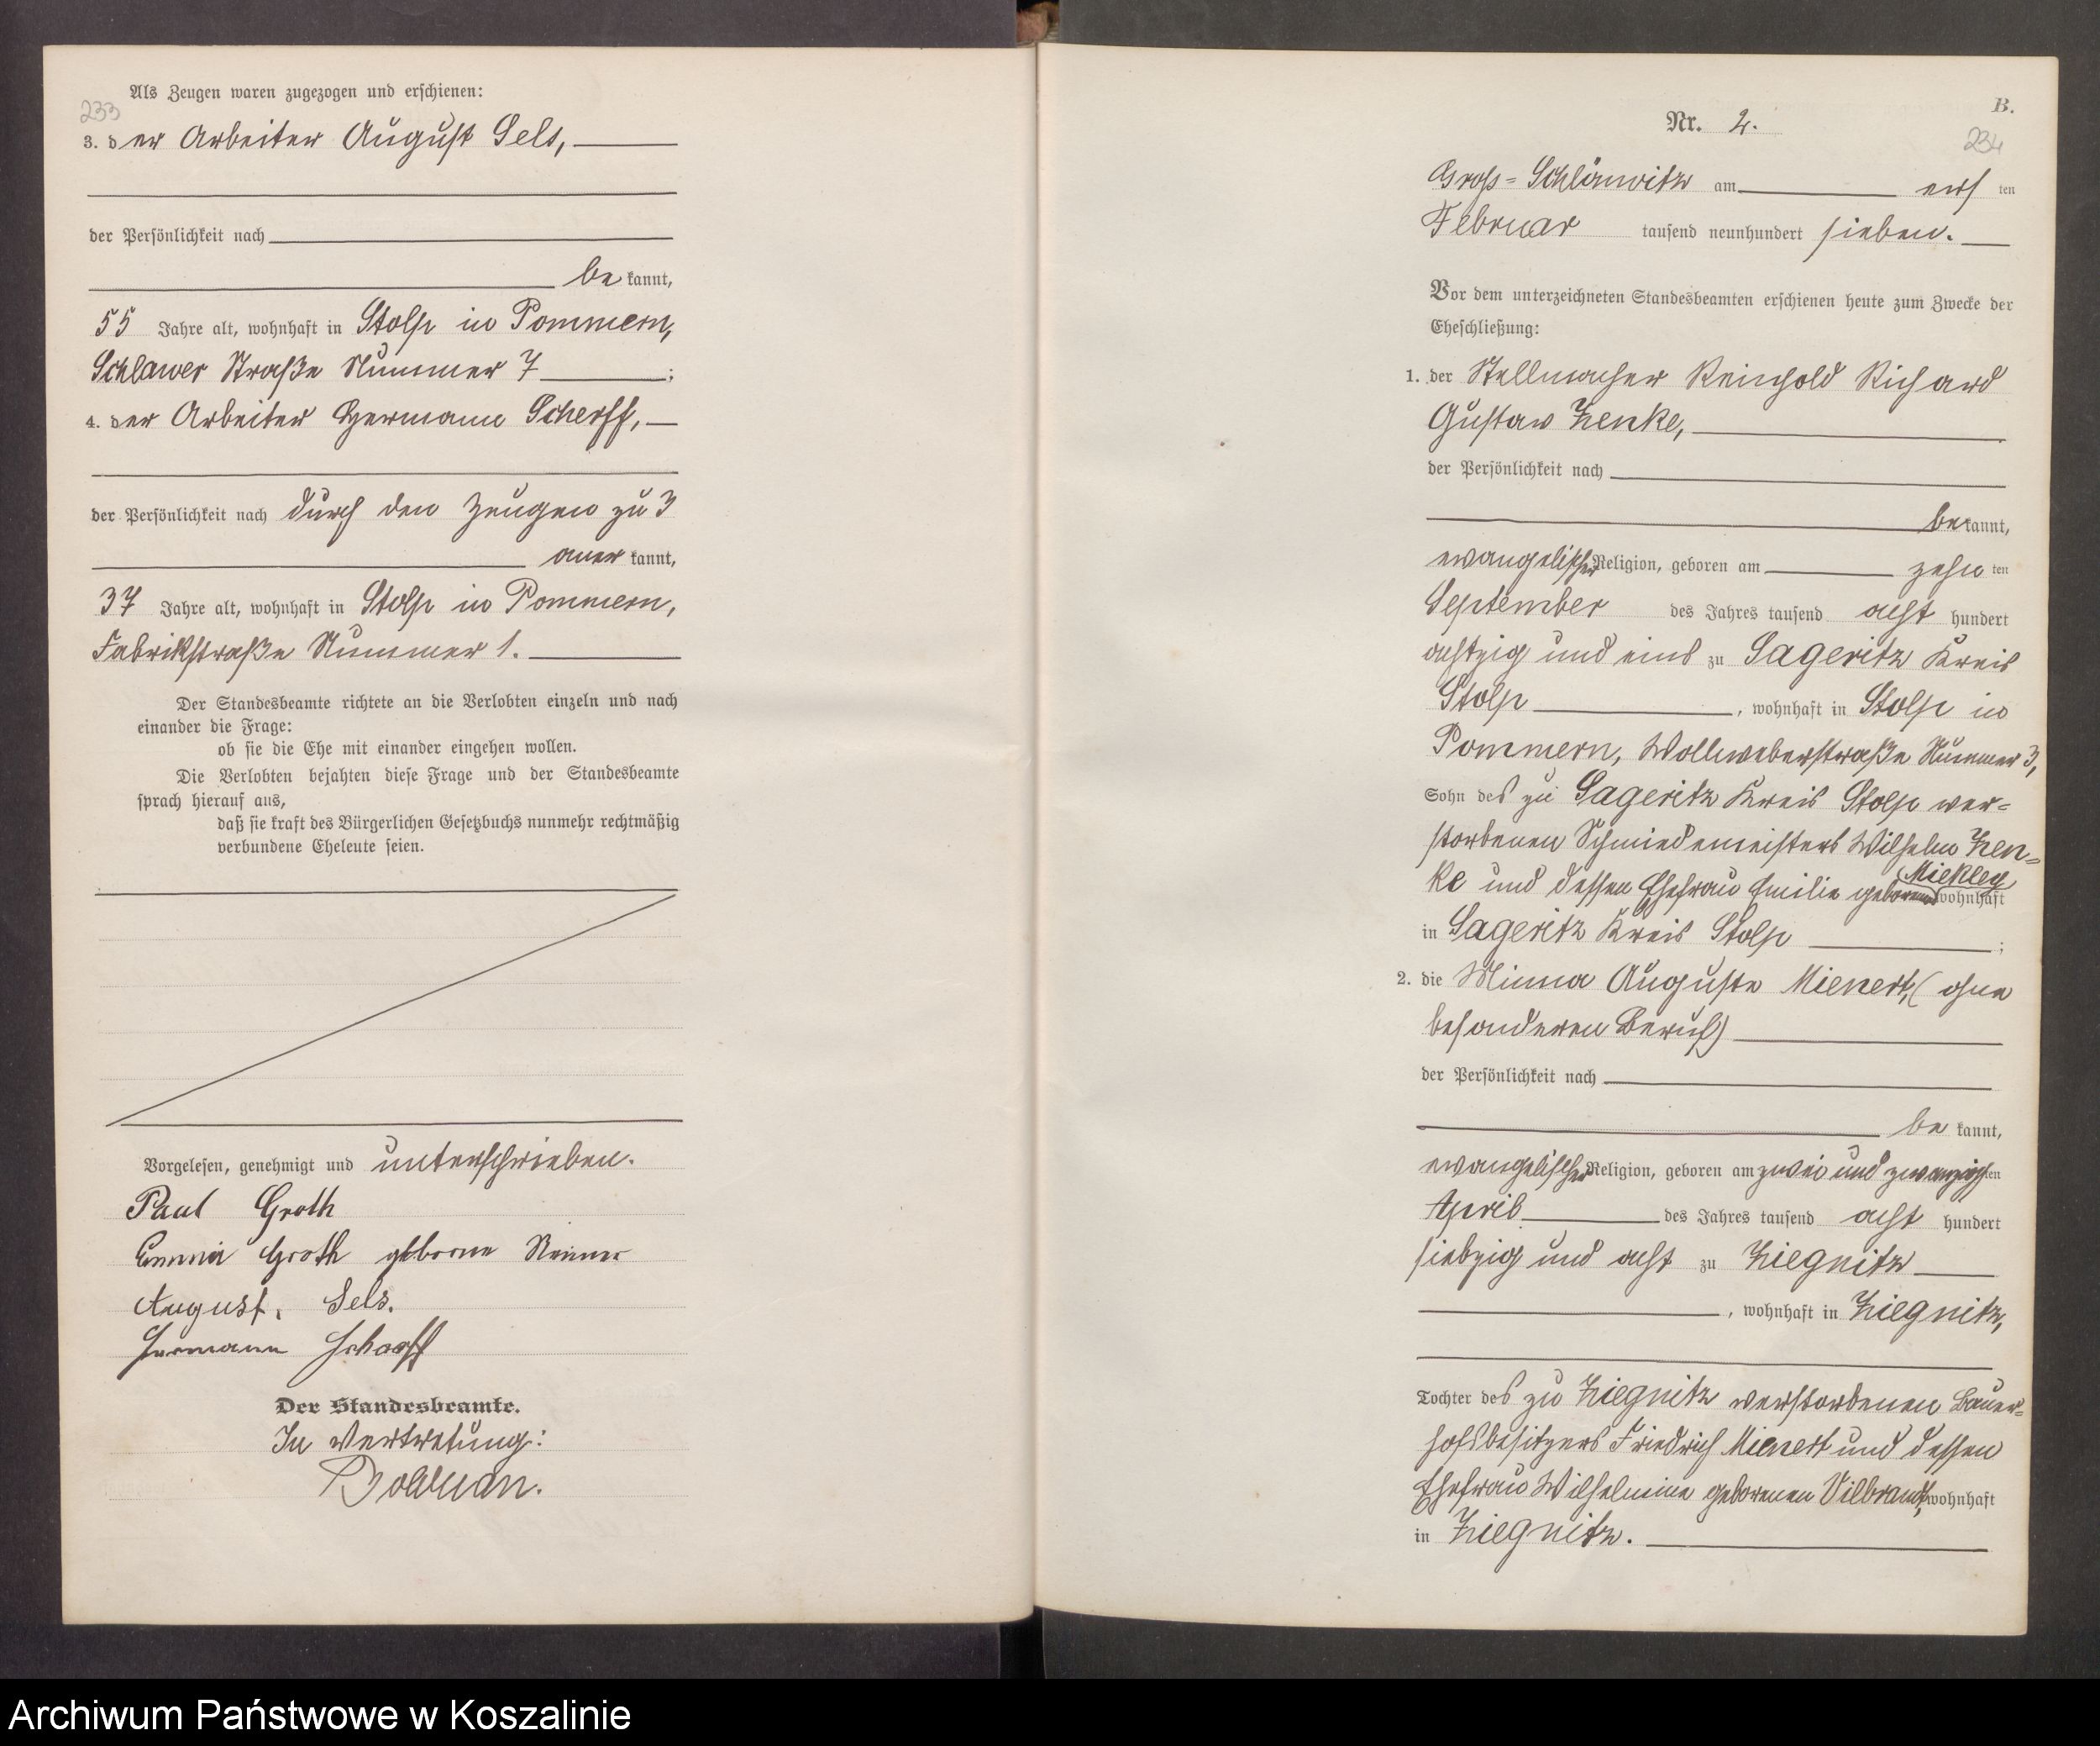 Als Zeugen waren zugezogen und erschienen:
233
3. der Arbeiter August Sels,
der Persönlichkeit nach
bekannt,
55 Jahre alt, wohnhaft in Stolp in Pommern,
Schlawer Straße Nummer 7;
4. der Arbeiter Hermann Scherff,
der Persönlichkeit nach durch den Zeugen zu 3
anerkannt,
37 Jahre alt, wohnhaft in Stolp in Pommern,
Fabrikstraße Nummer 1.
Der Standesbeamte richtete an die Verlobten einzeln und nach
einander die Frage:
ob sie die Ehe mit einander eingehen wollen.
Die Verlobten bejahten diese Frage und der Standesbeamte
sprach hierauf aus,
daß sie kraft des Bürgerlichen Gesetzbuchs nunmehr rechtmäßig
verbundene Eheleute seien.
Vorgelesen, genehmigt und unterschrieben.
Paul Groth
Emma Groth geborne
August Sels.
Hermann Scherff
Der Standesbeamte.
In Vertretung:
B.
Nr. 2.
234
Gross-Schlönwitz am ersten
Februar tausend neunhundert sieben.
Vor dem unterzeichneten Standesbeamten erschienen heute zum Zwecke der
Eheschließung:
1. der Stellmacher Reinhold Richard
Gustav Zenke,
der Persönlichkeit nach
bekannt,
evangelischer Religion, geboren am zehnten
September des Jahres tausend achthundert
achtzig und eins zu Sageritz Kreis
Stolp, wohnhaft in Stolp in
Pommern, Wollweberstraße Nummer 3,
Sohn des zu Sageritz Kreis Stolp ver=
storbenen Schmiedemeisters Wilhelm Zen=
ke und dessen Ehefrau Emilie geborenen Mickley wohnhaft
in Sageritz Kreis Stolp;
2. die Minna Auguste Mienert, (ohne
besonderen Beruf)
der Persönlichkeit nach
bekannt,
evangelischer Religion, geboren am zwei und zwanzigsten
April des Jahres tausend achthundert
siebzig und acht zu Ziegnitz
, wohnhaft in Ziegnitz,
Tochter des zu Ziegnitz verstorbenen Bauer=
hofsbesitzers Friedrich Mienert und dessen
Ehefrau Wilhelmine geborenen Vilbrandt, wohnhaft
in Ziegnitz.
Archiwum Państwowe w Koszalinie